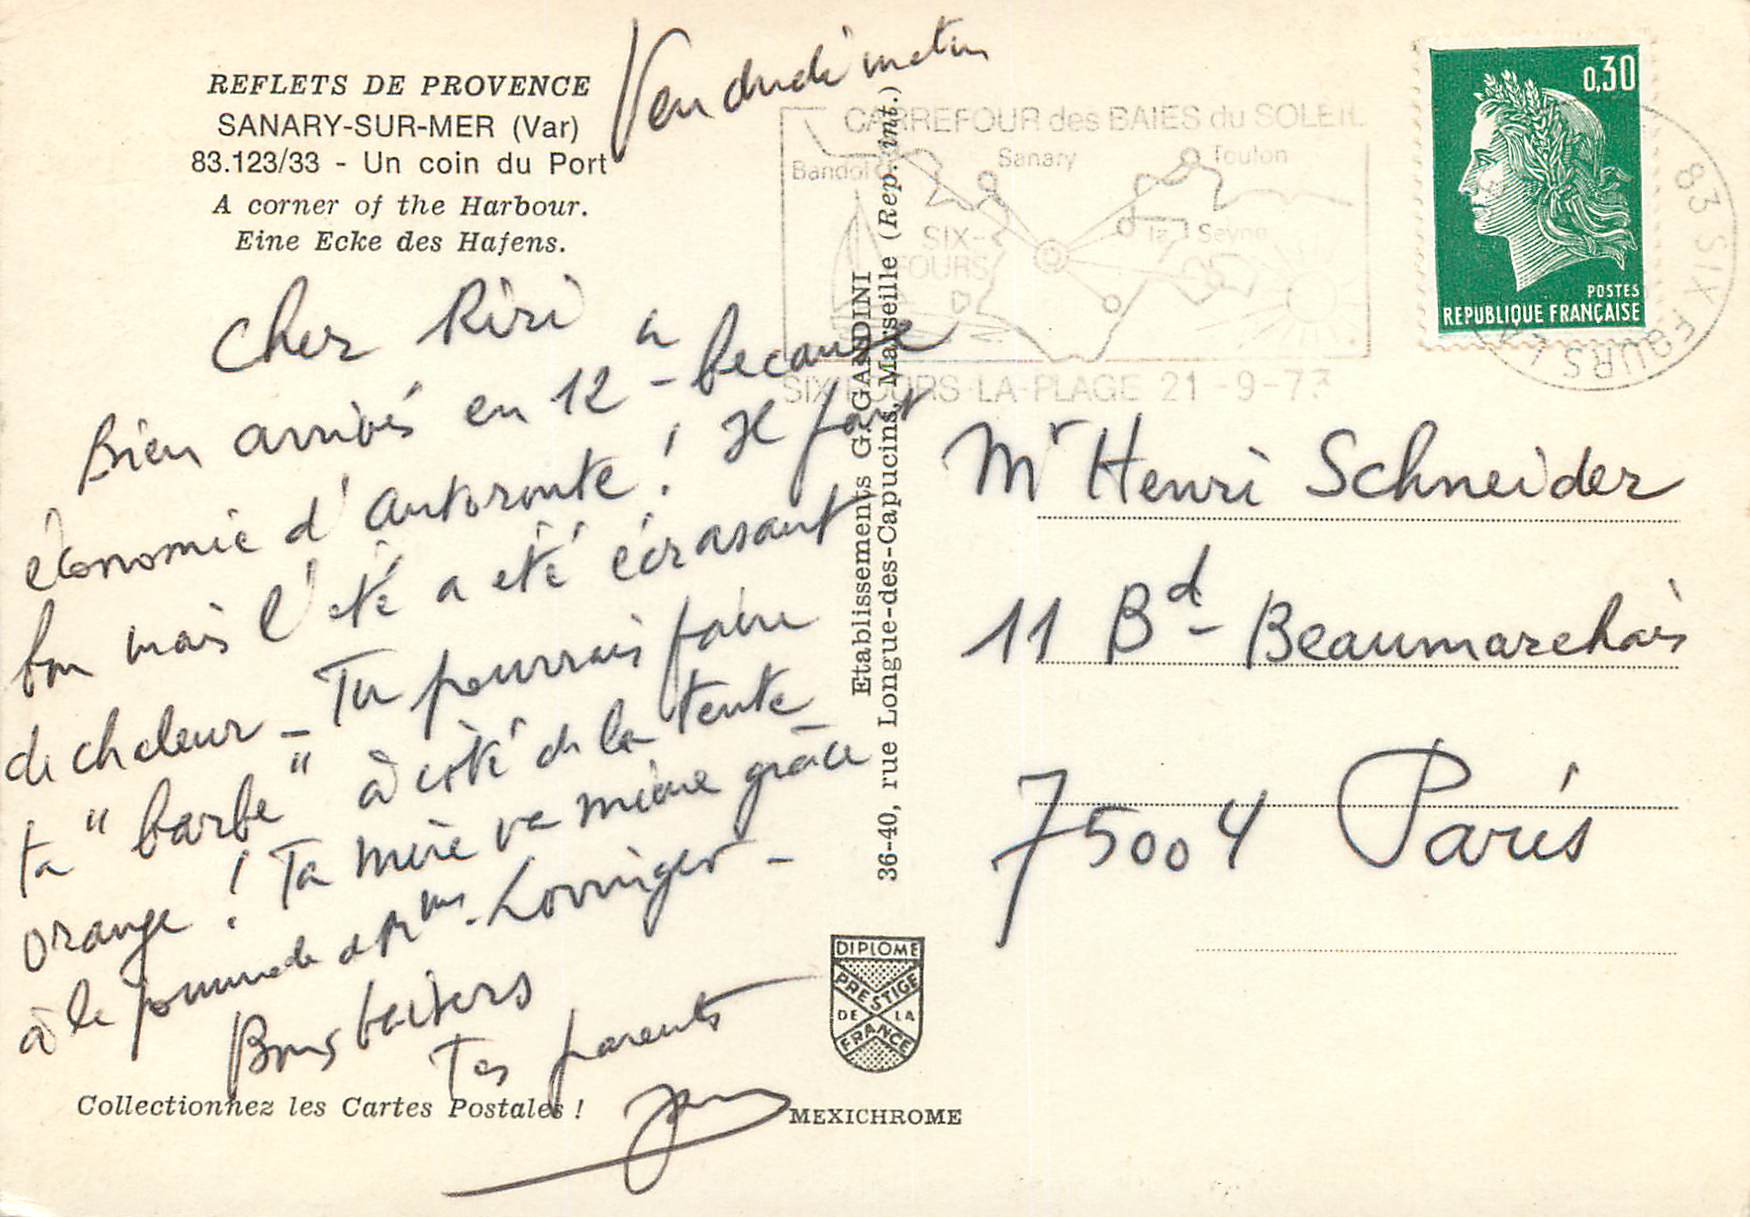 REFLETS DE PROVENCE
SANARY-SUR-MER (Var)
83.123/33 - Un coin du Port
A corner of the Harbour.
Eine Ecke des Hafens.
Vendredi matin
Cher Riri
Bien arrivés en 12 h - because
économie d'autoroute ! Il fait
bon mais l'été a été écrasant
de chaleur - Tu pourrais faire
ta "barbe" à côté de la tente
orange ! Ta mère va mieux grâce
à la pommade de Mme Lorringer -
Bons baisers
Tes parents
Collectionnez les Cartes Postales !
Etablissements G. GANDINI
36-40, rue Longue-des-Capucins, Marseille (Rep. int.)
DIPLOME
PRESTIGE
DE LA
FRANCE
MEXICHROME
CARREFOUR des BAIES du SOLEIL
Bandol
Sanary
Toulon
SIX-
FOURS
la Seyne
SIX-FOURS-LA-PLAGE 21-9-73
0,30
POSTES
REPUBLIQUE FRANÇAISE
83 SIX FOURS
Mr Henri Schneider
11 Bd - Beaumarchais
75004 Paris